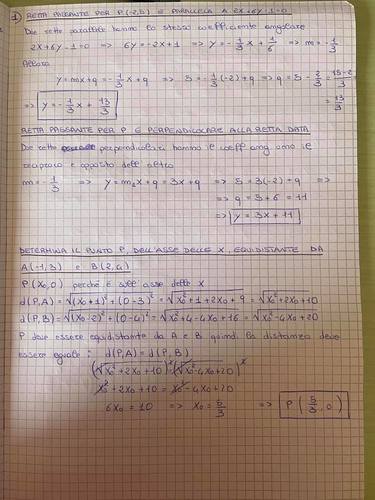 1) RETTA PASSANTE PER P(-2,5) E PARALLELA A 2X+6Y-1=0
Due rette parallele hanno lo stesso coefficiente angolare
2X+6Y-1=0 => 6Y=-2X+1 => Y=-1/3 X + 1/6 => m=-1/3
Allora
y=mx+q=-1/3 x+q => 5=-1/3(-2)+q => q=5-2/3=(15-2)/3
=> y=-1/3 x + 13/3 = 13/3
RETTA PASSANTE PER P E PERPENDICOLARE ALLA RETTA DATA
Due rette perpendicolari hanno il coeff ang. uno il
reciproco e opposto dell'altro
m=-1/3 => y=m₂x+q=3x+q => 5=3(-2)+q =>
=> q=5+6=11
=> y=3x+11
DETERMINA IL PUNTO P, DELL'ASSE DELLE X, EQUIDISTANTE DA
A(-1,3) e B(2,4)
P(X₀,0) perché è sull'asse delle X
d(P,A)=√((X₀+1)²+(0-3)²)=√(X₀²+1+2X₀+9)=√(X₀²+2X₀+10)
d(P,B)=√((X₀-2)²+(0-4)²)=√(X₀²+4-4X₀+16)=√(X₀²-4X₀+20)
P deve essere equidistante da A e B quindi la distanza deve
essere uguale: d(P,A)=d(P,B)
(√(X₀²+2X₀+10))²=(√(X₀²-4X₀+20))²
X₀²+2X₀+10=X₀²-4X₀+20
6X₀=10 => X₀=5/3 => P(5/3,0)